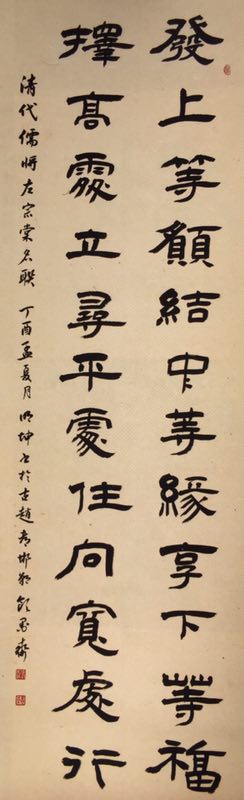 發上等願結中等緣享下等福
擇高處立尋平處住向寬處行
清代儒將左宗棠名聯 丁酉孟夏月 明坤書於古趙都邯鄲